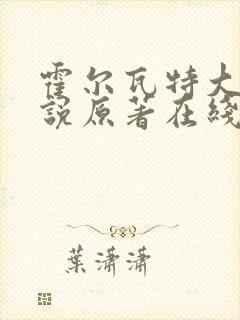 霍尔瓦特大
說原著在綫
葉瀟瀟